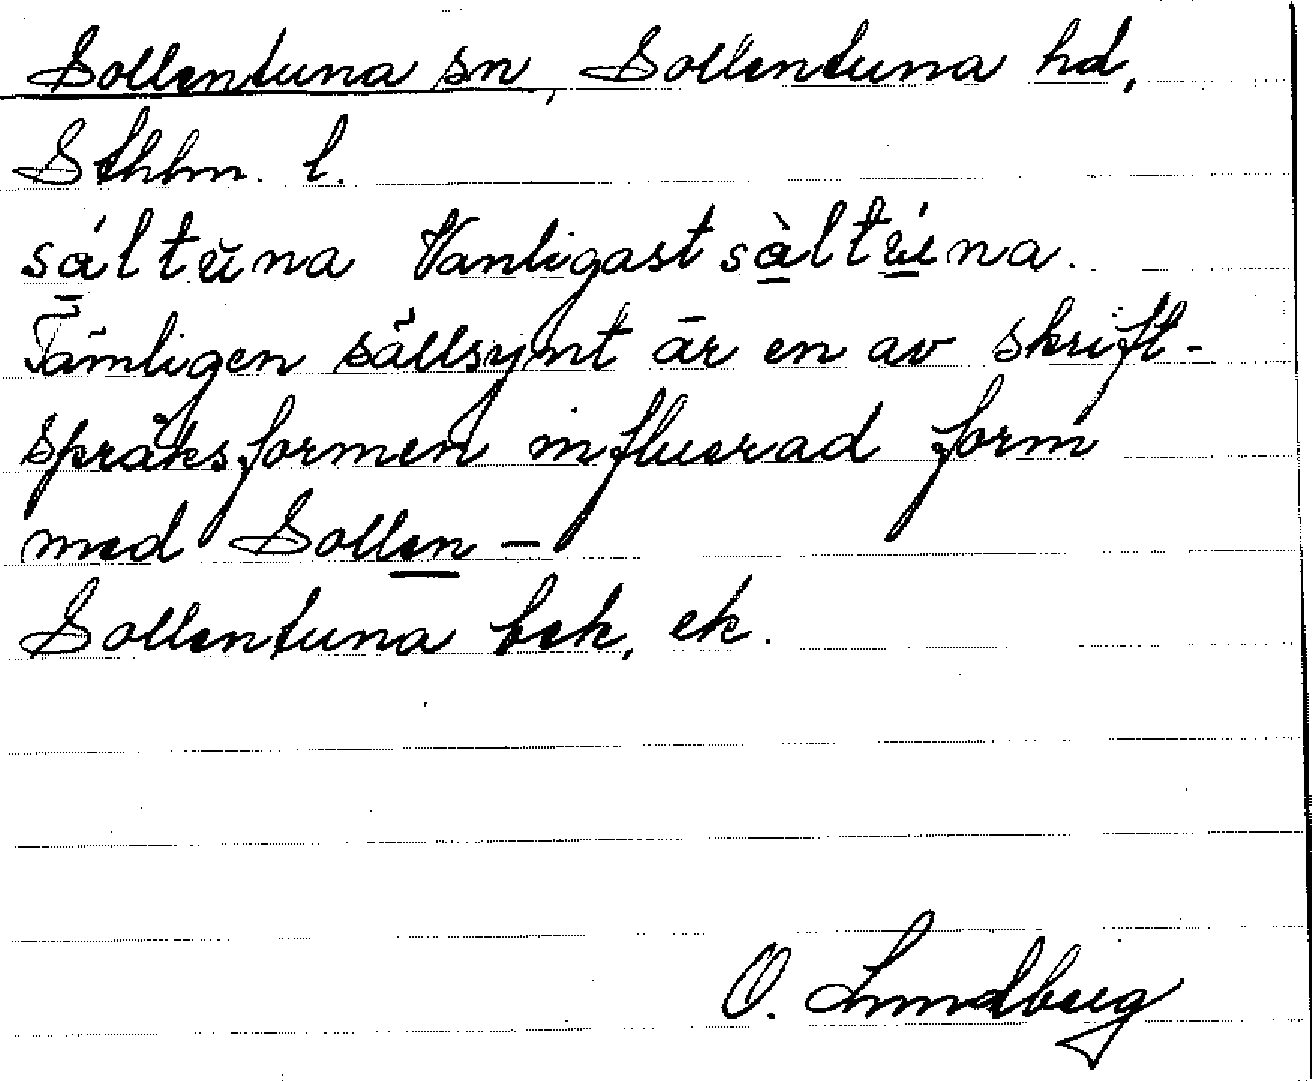 Sollentuna sn, Sollentuna hd,
Sthlm. l.
sáltŭna Vanligast sàltúna.
Tämligen sällsynt är en av skrift-
språksformen influerad form
med Sollen-
Sollentuna bek, ek.
O. Lundberg